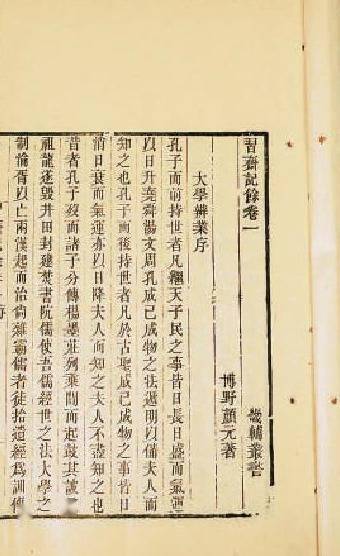 習齋記餘卷一
畿輔叢書
博野顏元著
大學辨業序
孔子而前持世者凡繼天子民之事皆日長日盛而氣運
亦以日升堯舜湯文周孔成己成物之法遞明以備夫人而
知之也孔子而後持世者凡於古聖成己成物之事皆日
消日衰而氣運亦以日降夫人而知之夫人不盡知之也
昔者孔子歿而諸子分傳楊墨莊列乘間而起鼓其說
祖龍遂毀井田封建焚書阬儒使吾儒經世之法大學之
制淪胥以亡兩漢起而治尚雜霸儒者徒拾遺經為訓傳